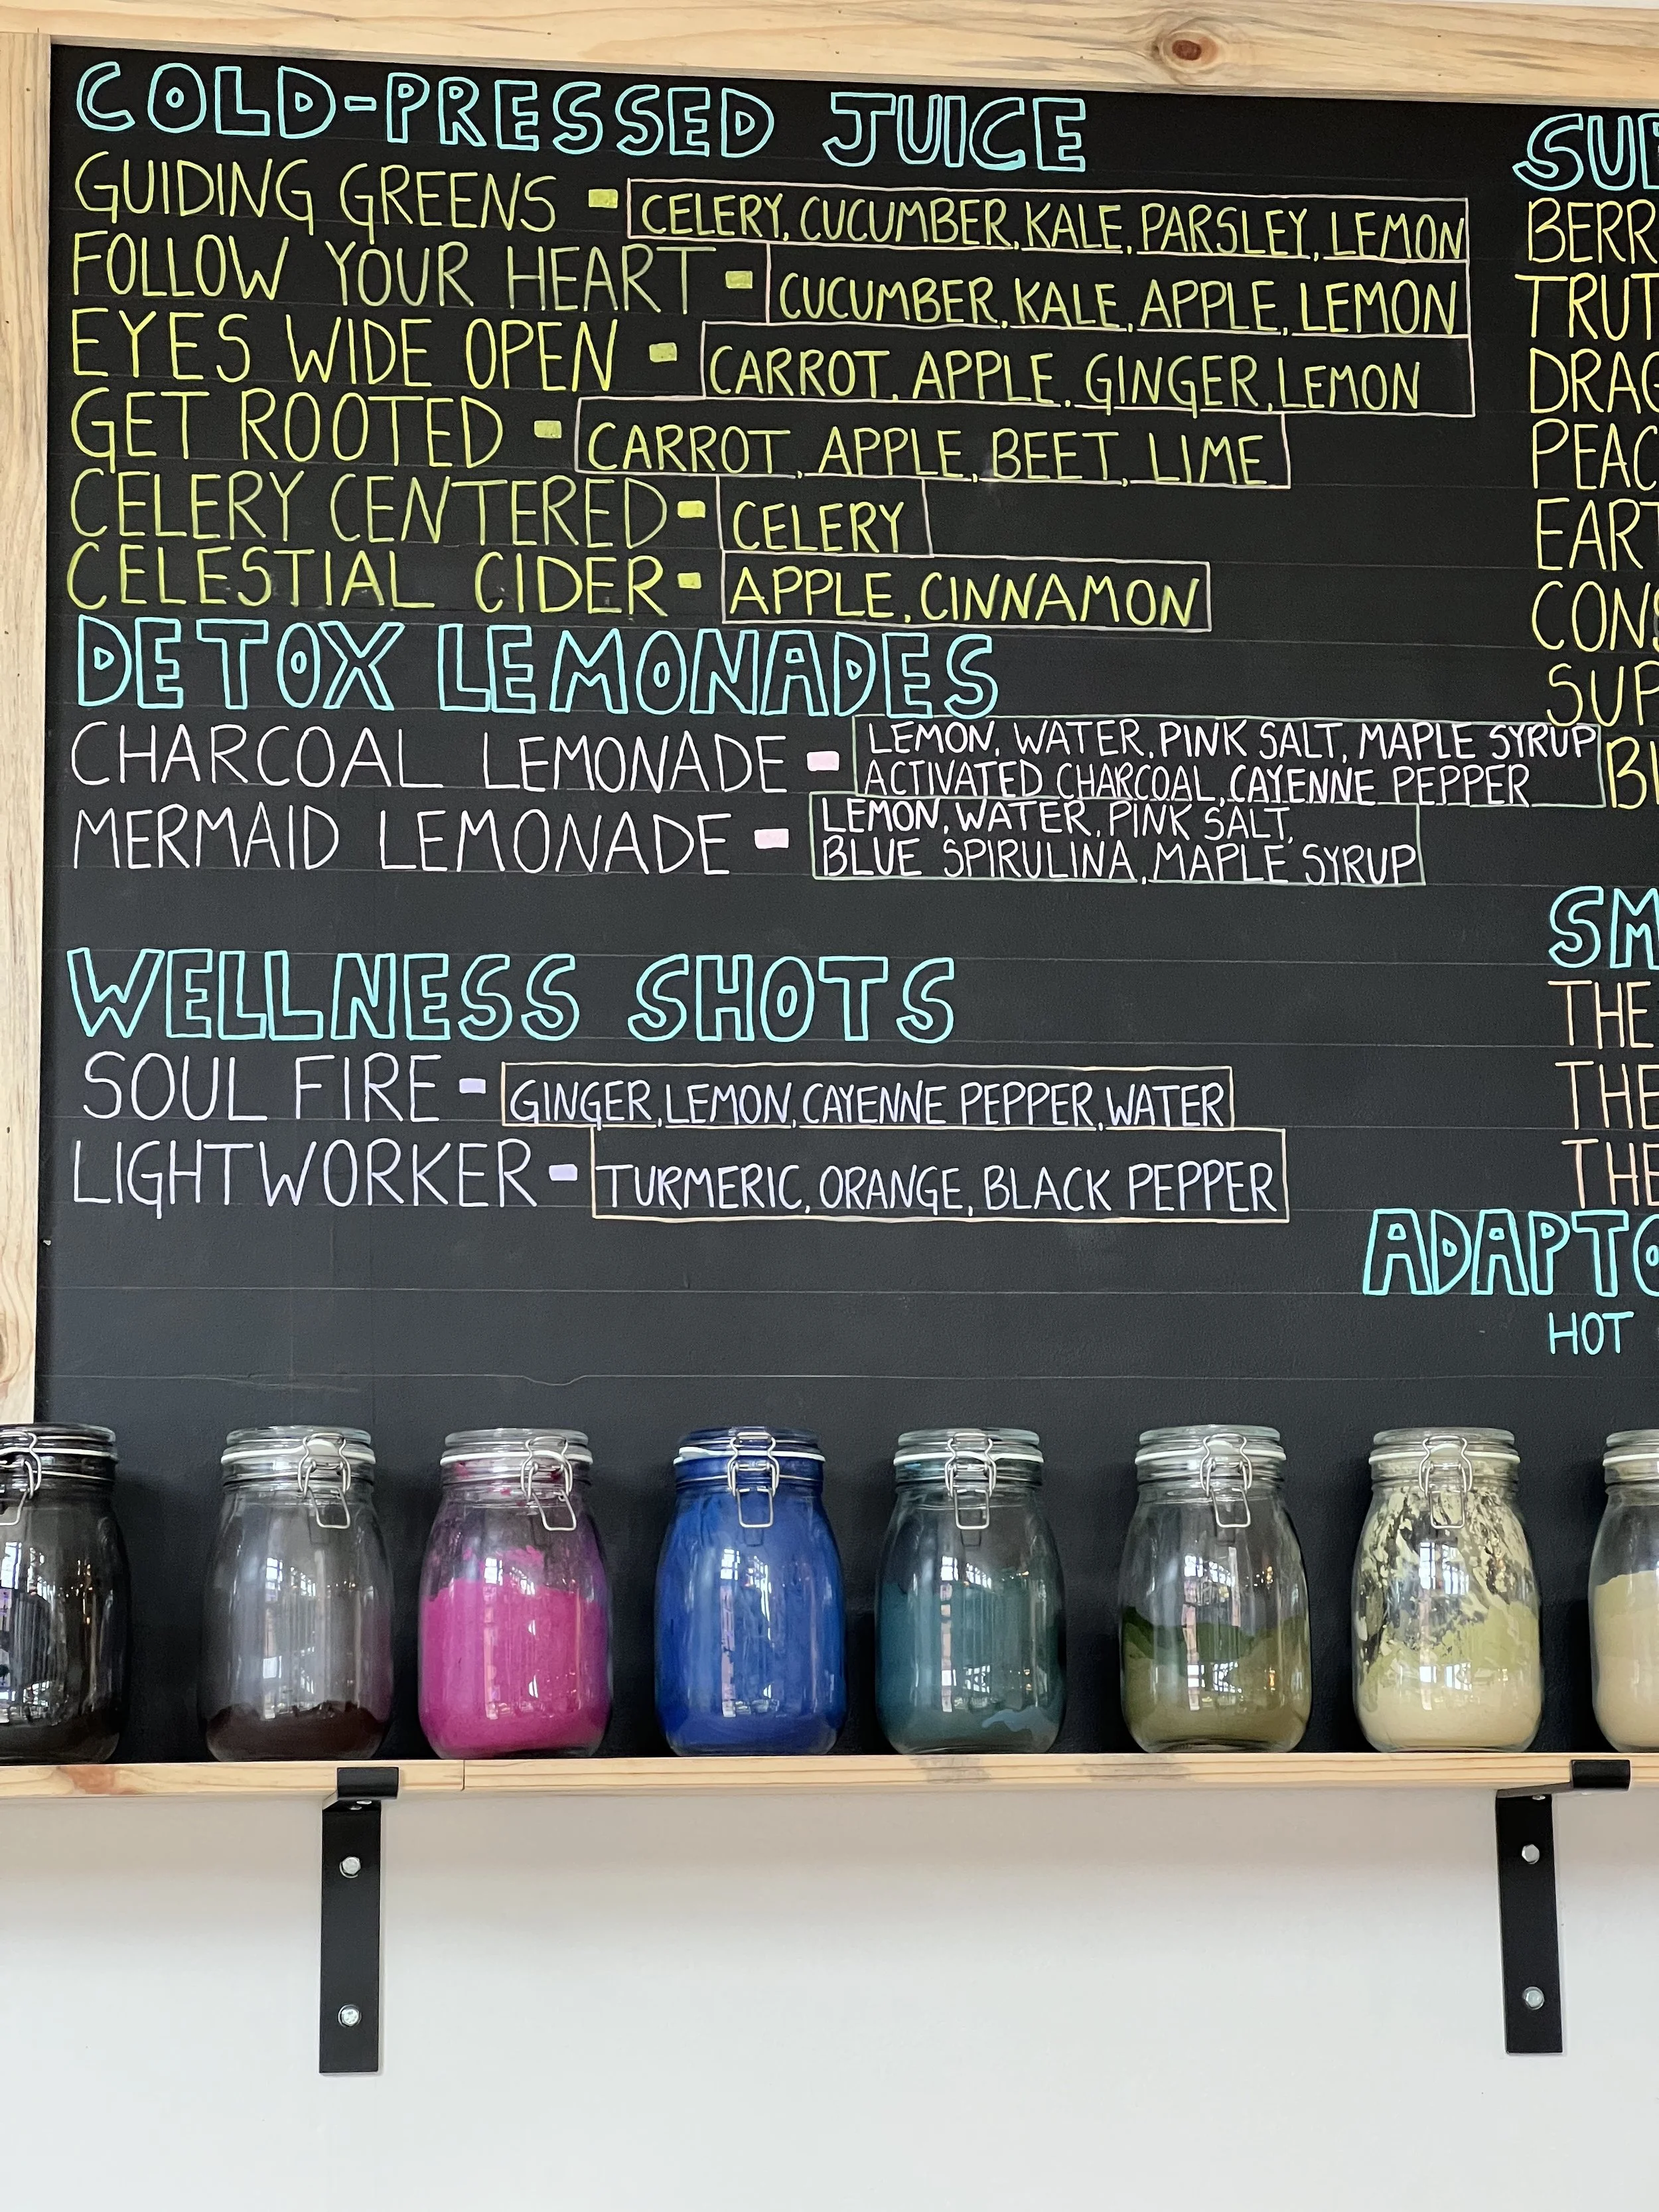 COLD-PRESSED JUICE
GUIDING GREENS - CELERY, CUCUMBER, KALE, PARSLEY, LEMON
FOLLOW YOUR HEART - CUCUMBER, KALE, APPLE, LEMON
EYES WIDE OPEN - CARROT, APPLE, GINGER, LEMON
GET ROOTED - CARROT, APPLE, BEET, LIME
CELERY CENTERED - CELERY
CELESTIAL CIDER - APPLE, CINNAMON
DETOX LEMONADES
CHARCOAL LEMONADE - LEMON, WATER, PINK SALT, MAPLE SYRUP
ACTIVATED CHARCOAL, CAYENNE PEPPER
MERMAID LEMONADE - LEMON, WATER, PINK SALT,
BLUE SPIRULINA, MAPLE SYRUP
WELLNESS SHOTS
SOUL FIRE - GINGER, LEMON, CAYENNE PEPPER, WATER
LIGHTWORKER - TURMERIC, ORANGE, BLACK PEPPER
THE
THE
THE
HOT